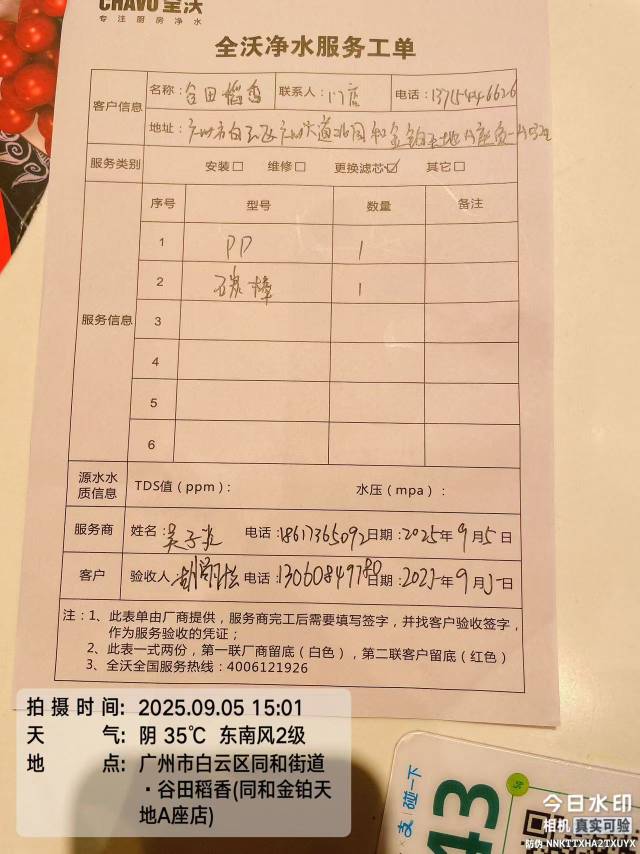 CHAVO 全沃
专注厨房净水
全沃净水服务工单
客户信息
名称：谷田稻香 联系人：门店 电话：13715446626
地址：广州市白云区广州大道北同和金铂天地A座
服务类别 安装□ 维修□ 更换滤芯☑ 其它□
服务信息
序号 型号 数量 备注
1 PP 1
2 碳棒 1
3
4
5
6
源水水质信息 TDS值（ppm）： 水压（mpa）：
服务商 姓名： 电话：18617365092 日期：2025年9月5日
客户 验收人 电话：13060849780 日期：2025年9月5日
注：1、此表单由厂商提供，服务商完工后需要填写签字，并找客户验收签字，
作为服务验收的凭证；
2、此表一式两份，第一联厂商留底（白色），第二联客户留底（红色）
3、全沃全国服务热线：4006121926
拍摄时间：2025.09.05 15:01
天气：阴 35℃ 东南风2级
地点：广州市白云区同和街道
·谷田稻香(同和金铂天
地A座店)
支 碰一下
43
今日水印
相机 真实可验
防伪 NNKTTXHA2TXUYX